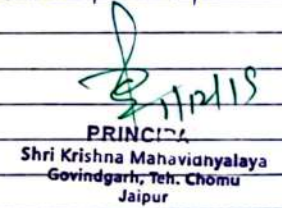 1/12/15
PRINCIPA
Shri Krishna Mahavidhyalaya
Govindgarh, Teh. Chomu
Jaipur